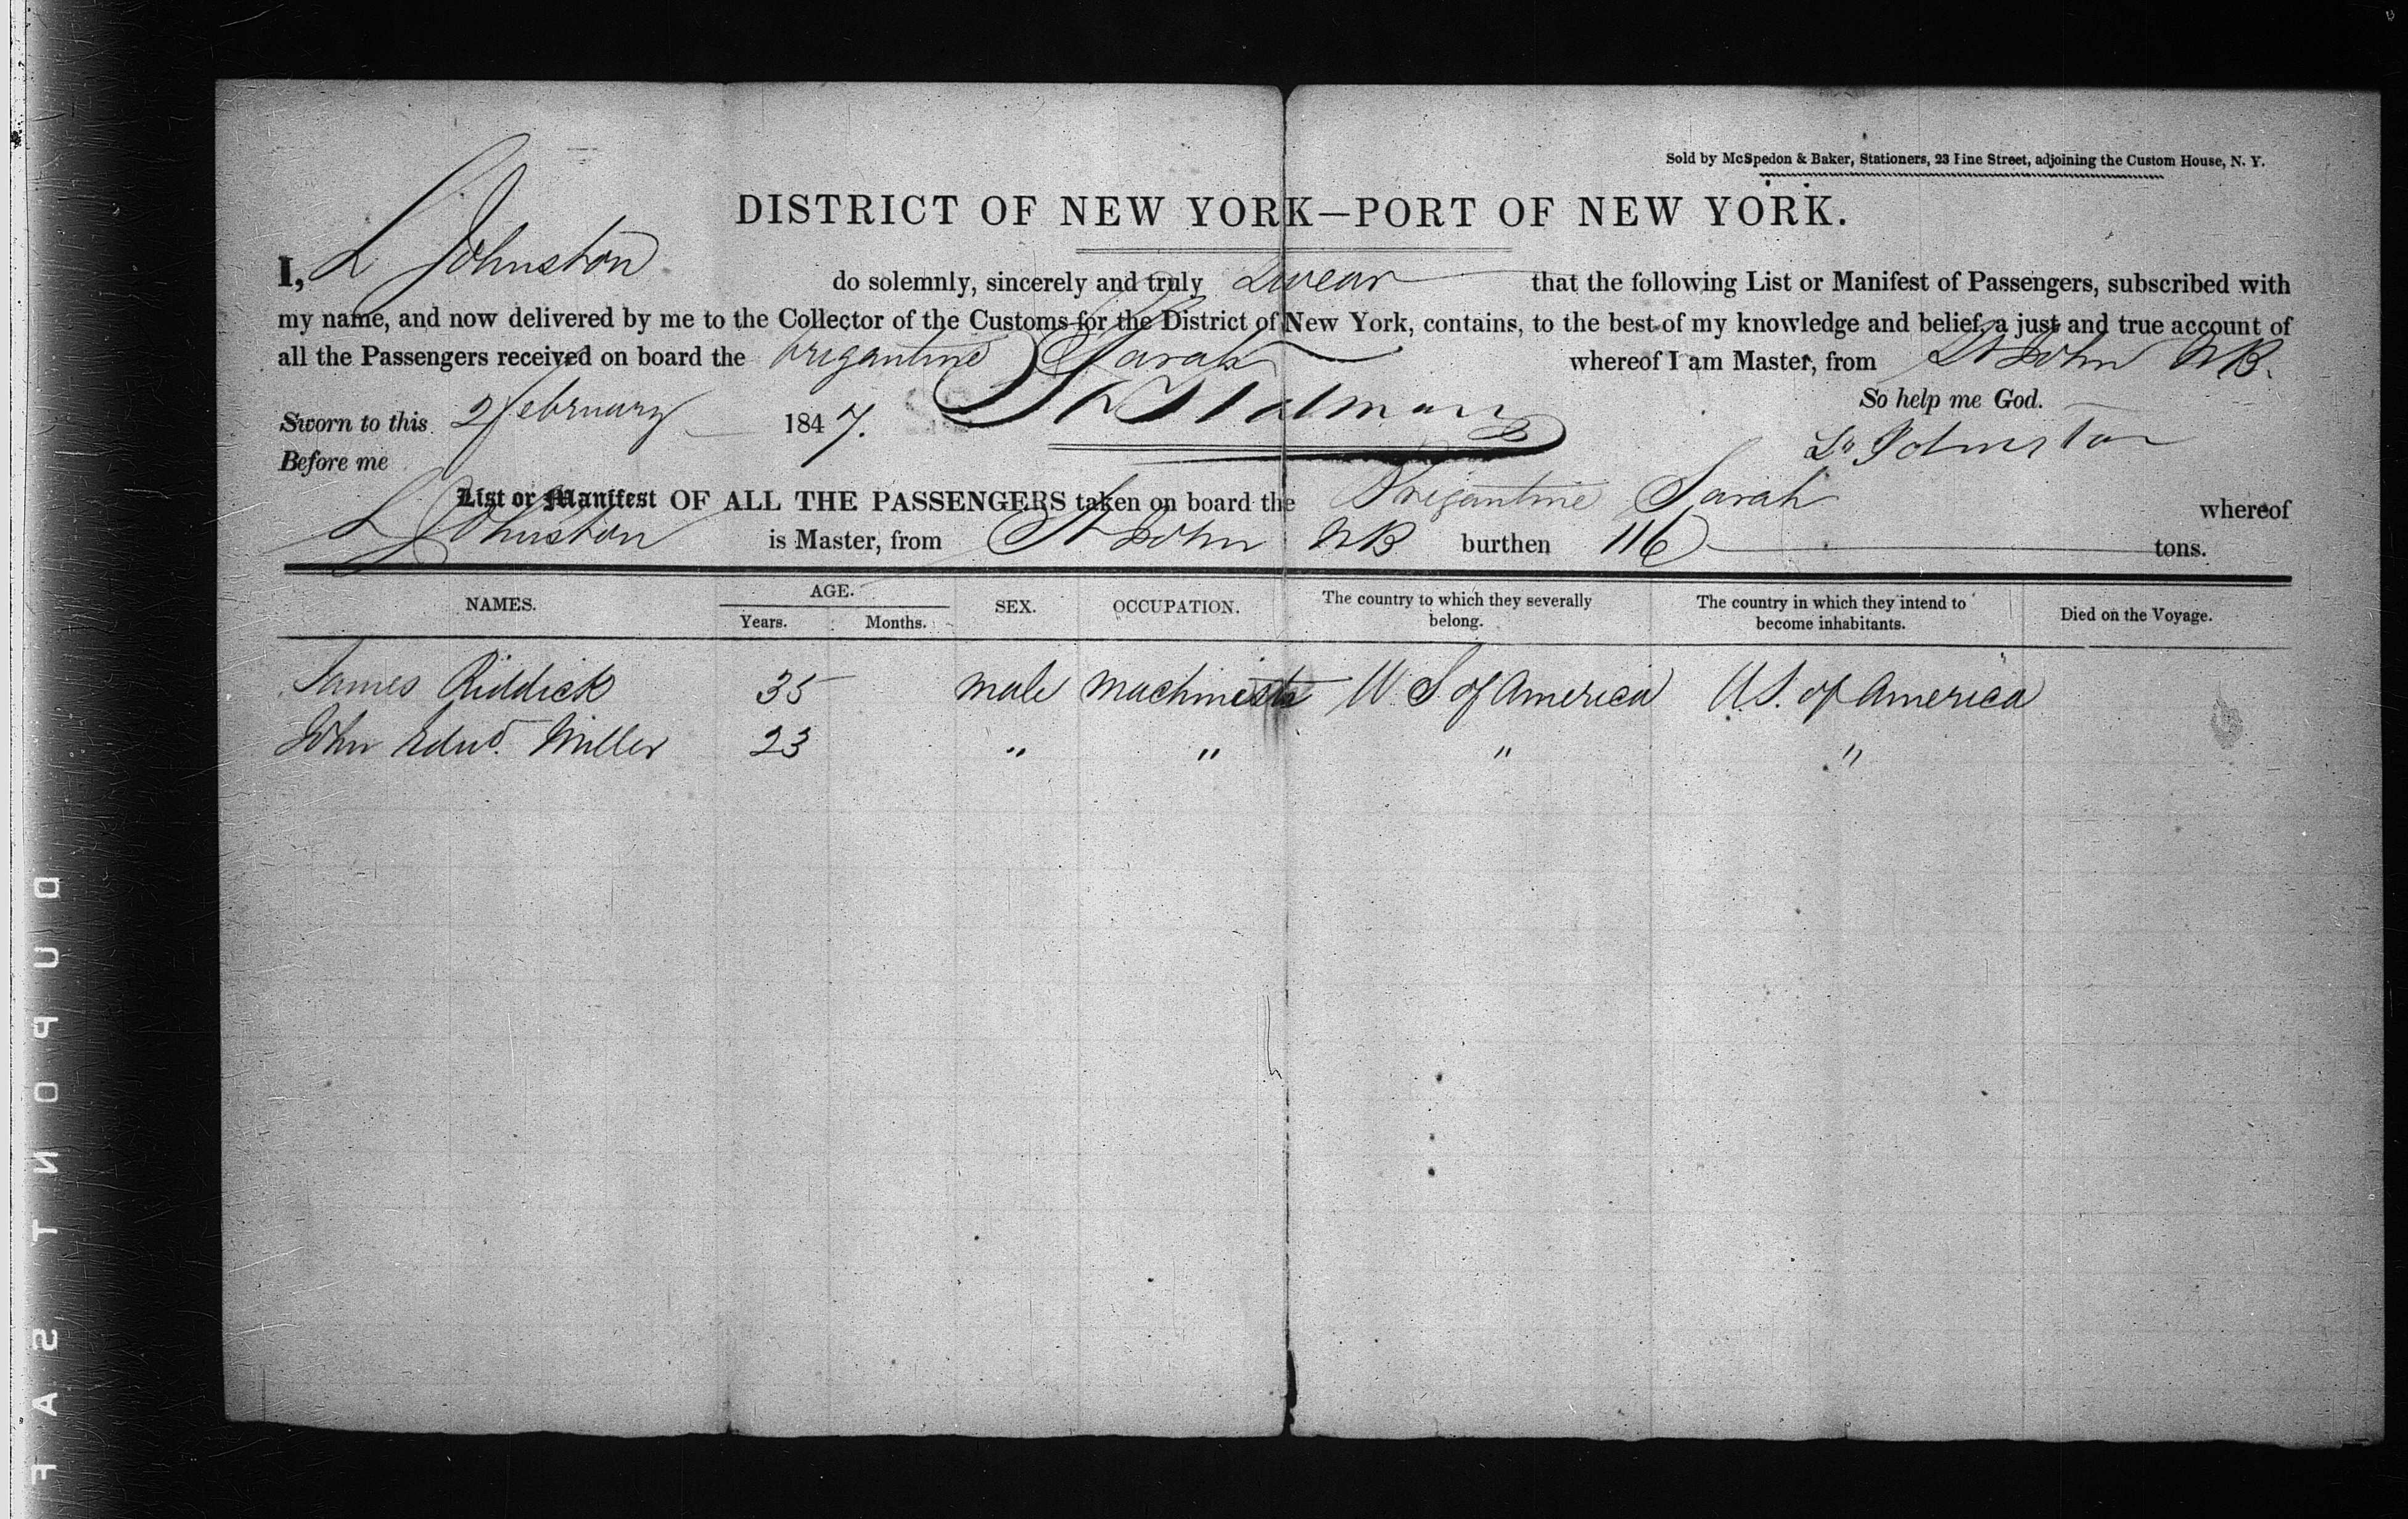 Sold by McSpedon & Baker, Stationers, 23 Pine Street, adjoining the Custom House, N. Y.
DISTRICT OF NEW YORK—PORT OF NEW YORK.
I, L Johnston do solemnly, sincerely and truly Swear that the following List or Manifest of Passengers, subscribed with
my name, and now delivered by me to the Collector of the Customs for the District of New York, contains, to the best of my knowledge and belief, a just and true account of
all the Passengers received on board the brigantine Sarah whereof I am Master, from St John NB.
So help me God.
Sworn to this 2 february 1847.
L Johnston
Before me
List or Manifest OF ALL THE PASSENGERS taken on board the Brigantine Sarah whereof
L Johnston is Master, from St John NB burthen 116 tons.
NAMES. AGE. Years. Months. SEX. OCCUPATION. The country to which they severally belong. The country in which they intend to become inhabitants. Died on the Voyage.
James Riddick 35 male machinists U. S of America U.S. of America
John Edwd. Miller 23 " " " "
DUPONT SAF